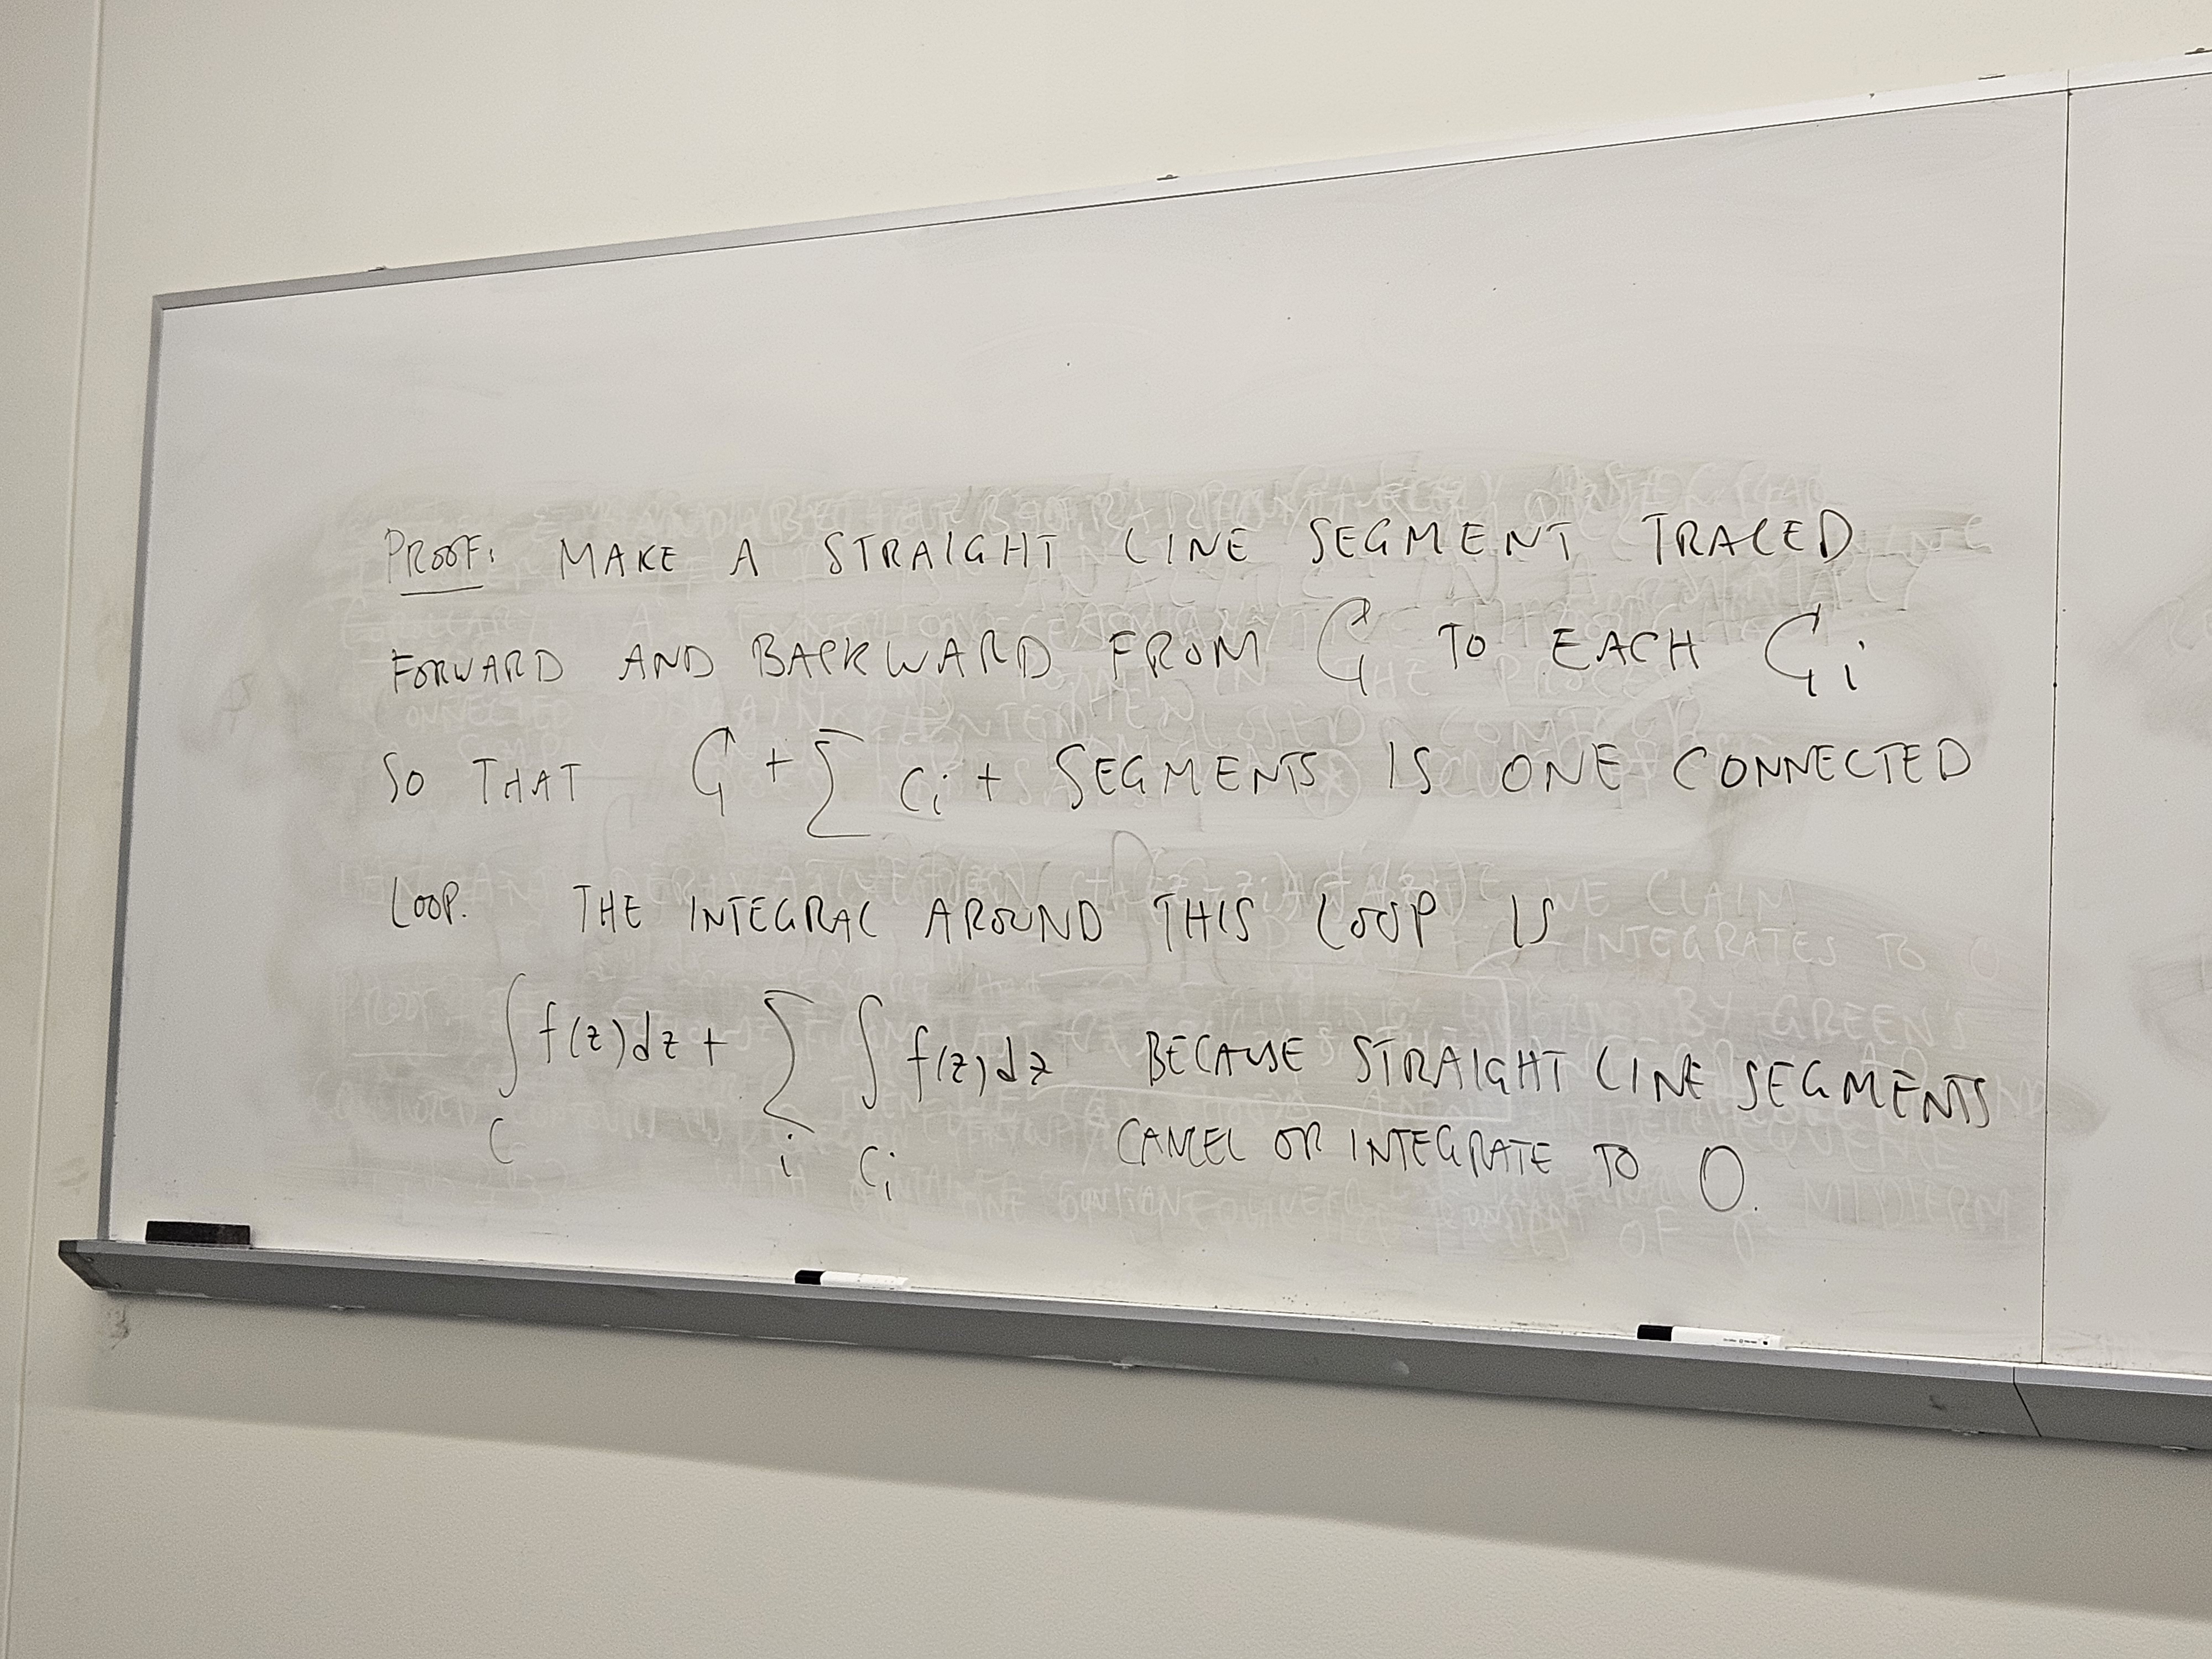 PROOF: MAKE A STRAIGHT LINE SEGMENT TRACED
FORWARD AND BACKWARD FROM C TO EACH Cᵢ
SO THAT C + ∑ Cᵢ + SEGMENTS IS ONE CONNECTED
LOOP. THE INTEGRAL AROUND THIS LOOP IS
∫_C f(z)dz + ∑_i ∫_{Cᵢ} f(z)dz BECAUSE STRAIGHT LINE SEGMENTS
CANCEL OR INTEGRATE TO 0.
WE CLAIM
INTEGRATES TO 0
BY GREEN'S